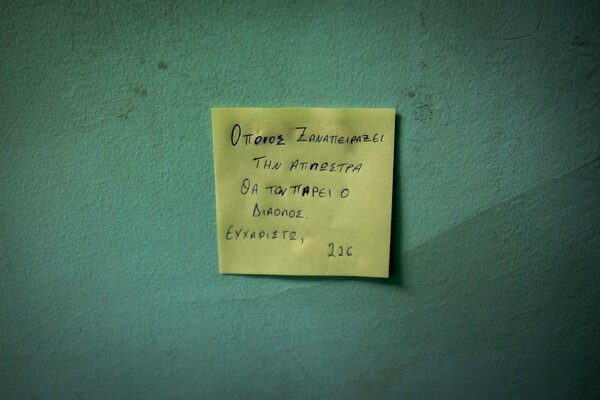 Οποιος Ξαναπειραζει
Την απλωστρα
Θα τον παρει ο
Διαολος.
Ευχαριστω,
226